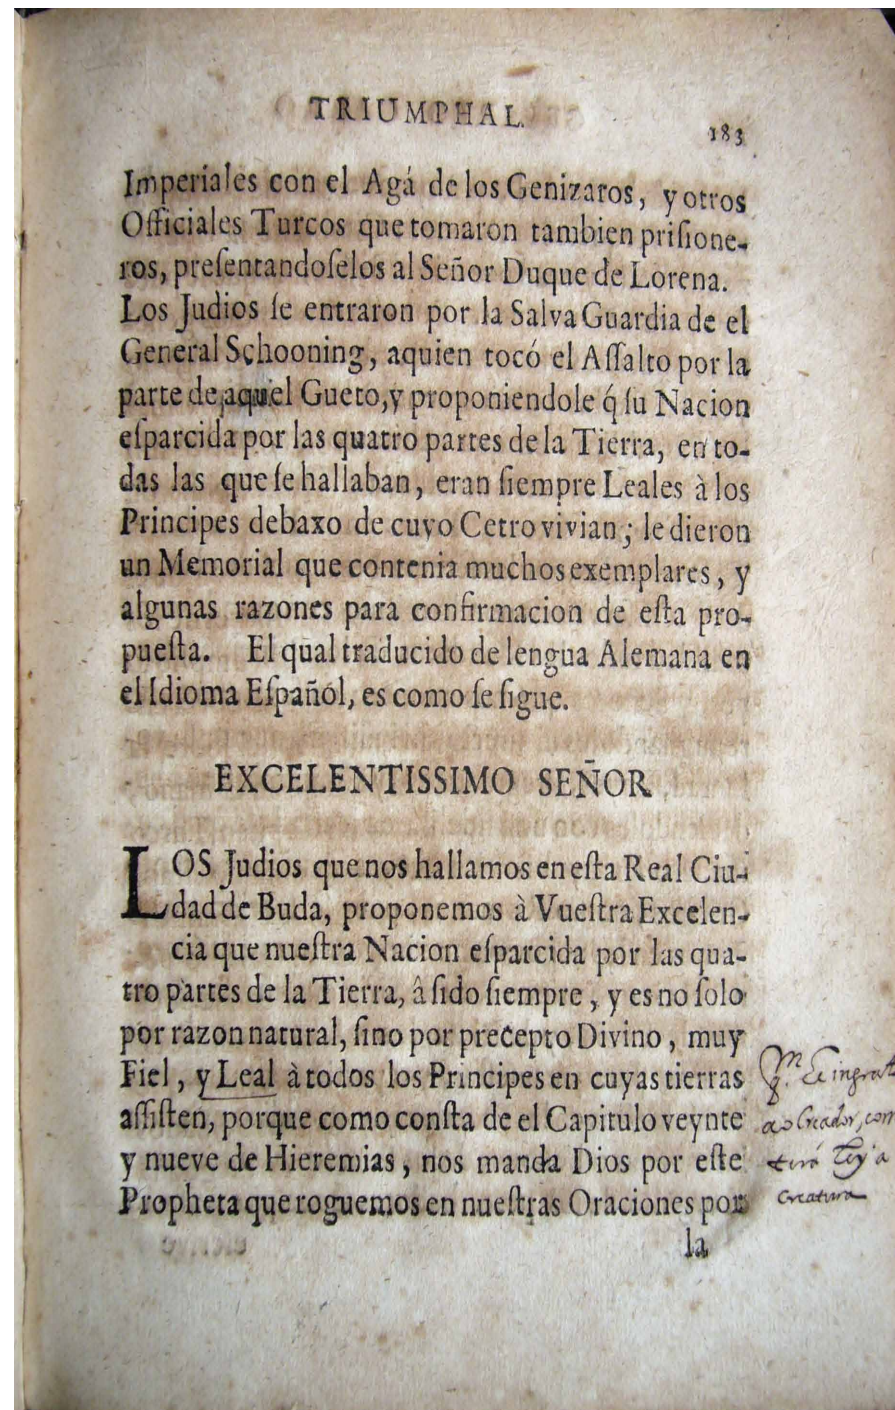 TRIUMPHAL.
183
Imperiales con el Agá de los Genizaros, y otros
Officiales Turcos que tomaron tambien priſione-
ros, preſentandoſelos al Señor Duque de Lorena.
Los Judios ſe entraron por la Salva Guardia de el
General Schooning, aquien tocó el Aſſalto por la
parte de aquel Gueto, y proponiendole q́ ſu Nacion
eſparcida por las quatro partes de la Tierra, en to-
das las que ſe hallaban, eran ſiempre Leales à los
Principes debaxo de cuyo Cetro vivian; le dieron
un Memorial que contenia muchos exemplares, y
algunas razones para confirmacion de eſta pro-
pueſta. El qual traducido de lengua Alemana en
el Idioma Eſpañól, es como ſe ſigue.
EXCELENTISSIMO SEÑOR
LOS Judios que nos hallamos en eſta Real Ciu-
dad de Buda, proponemos à Vueſtra Excelen-
cia que nueſtra Nacion eſparcida por las qua-
tro partes de la Tierra, â ſido ſiempre, y es no ſolo
por razon natural, ſino por precepto Divino, muy
Fiel, y Leal à todos los Principes en cuyas tierras
aſſiſten, porque como conſta de el Capitulo veynte
y nueve de Hieremias, nos manda Dios por eſte
Propheta que roguemos en nueſtras Oraciones por
la
ao Creador, com
creatura